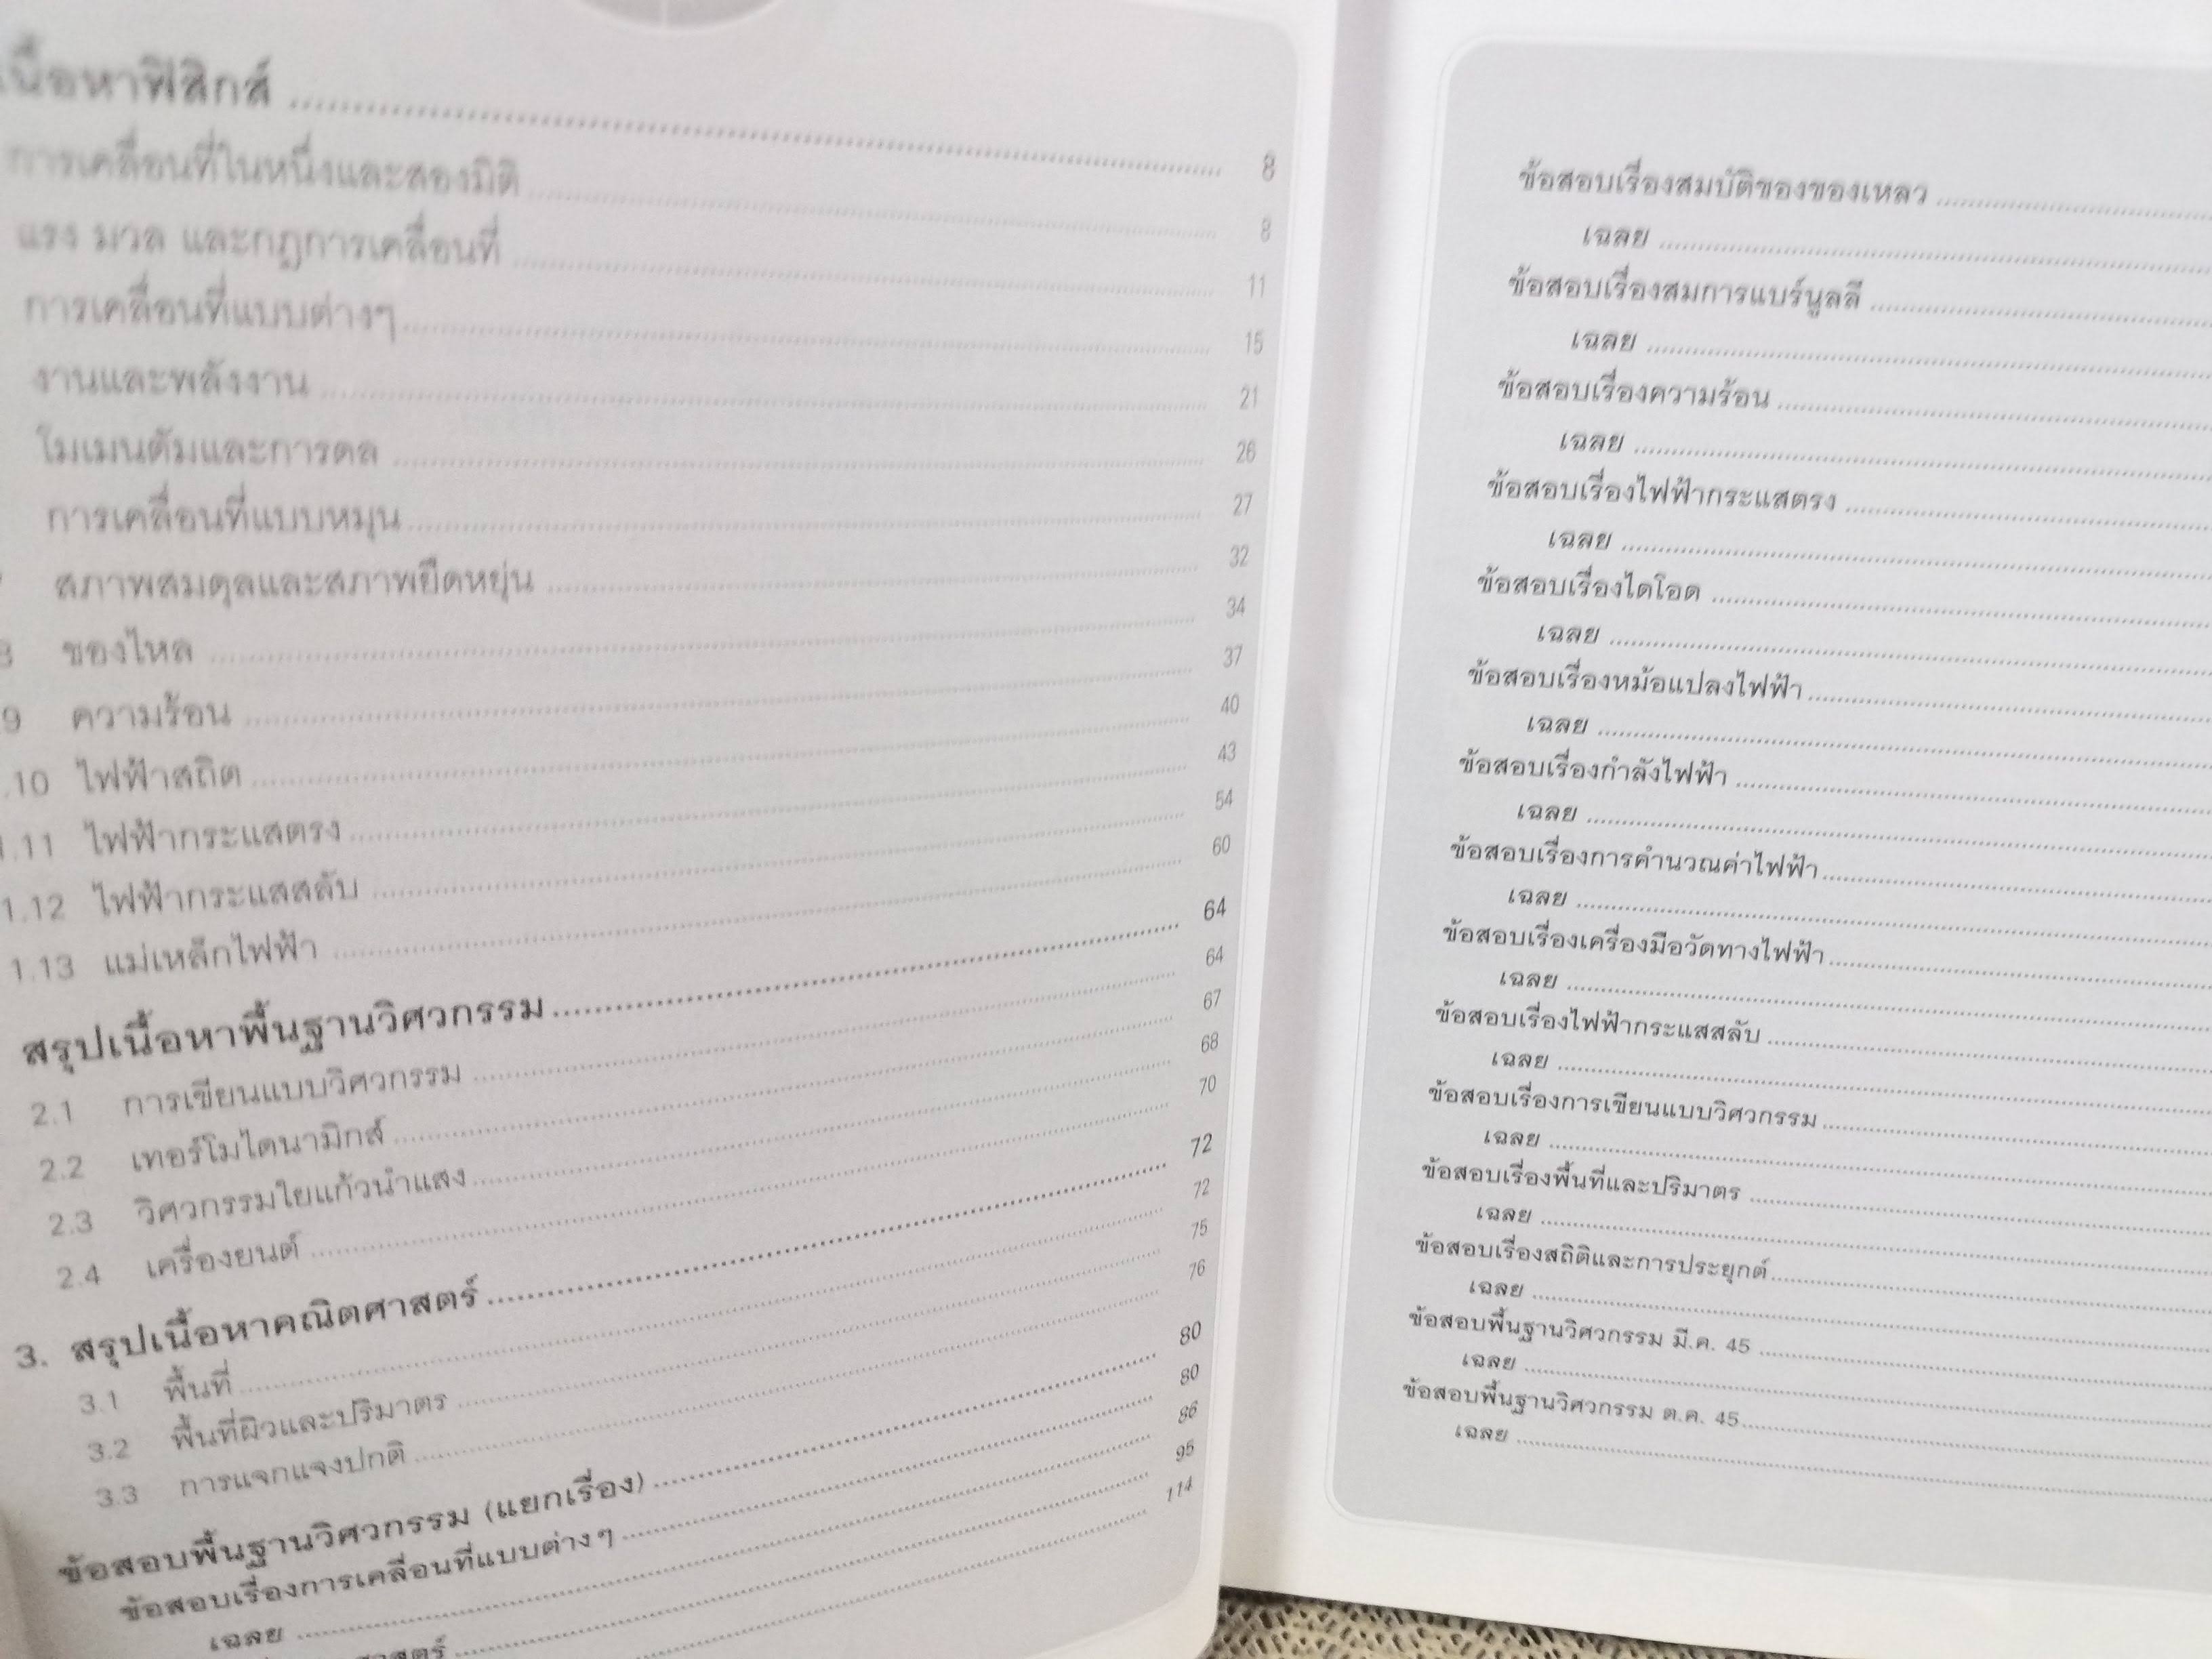 เนื้อหาฟิสิกส์ ........ 8
การเคลื่อนที่ในหนึ่งและสองมิติ ........ 8
แรง มวล และกฎการเคลื่อนที่ ........ 11
การเคลื่อนที่แบบต่างๆ ........ 15
งานและพลังงาน ........ 21
โมเมนตัมและการดล ........ 26
การเคลื่อนที่แบบหมุน ........ 27
สภาพสมดุลและสภาพยืดหยุ่น ........ 32
8 ของไหล ........ 34
9 ความร้อน ........ 37
.10 ไฟฟ้าสถิต ........ 40
1.11 ไฟฟ้ากระแสตรง ........ 43
1.12 ไฟฟ้ากระแสสลับ ........ 54
1.13 แม่เหล็กไฟฟ้า ........ 60
สรุปเนื้อหาพื้นฐานวิศวกรรม ........ 64
2.1 การเขียนแบบวิศวกรรม ........ 64
2.2 เทอร์โมไดนามิกส์ ........ 67
2.3 วิศวกรรมใยแก้วนำแสง ........ 68
2.4 เครื่องยนต์ ........ 70
3. สรุปเนื้อหาคณิตศาสตร์ ........ 72
3.1 พื้นที่ ........ 72
3.2 พื้นที่ผิวและปริมาตร ........ 75
3.3 การแจกแจงปกติ ........ 76
ข้อสอบพื้นฐานวิศวกรรม (แยกเรื่อง) ........ 80
ข้อสอบเรื่องการเคลื่อนที่แบบต่างๆ ........ 80
เฉลย ........ 86
95
114
ข้อสอบเรื่องสมบัติของของเหลว ........
เฉลย ........
ข้อสอบเรื่องสมการแบร์นูลลี ........
เฉลย ........
ข้อสอบเรื่องความร้อน ........
เฉลย ........
ข้อสอบเรื่องไฟฟ้ากระแสตรง ........
เฉลย ........
ข้อสอบเรื่องไดโอด ........
เฉลย ........
ข้อสอบเรื่องหม้อแปลงไฟฟ้า ........
เฉลย ........
ข้อสอบเรื่องกำลังไฟฟ้า ........
เฉลย ........
ข้อสอบเรื่องการคำนวณค่าไฟฟ้า ........
เฉลย ........
ข้อสอบเรื่องเครื่องมือวัดทางไฟฟ้า ........
เฉลย ........
ข้อสอบเรื่องไฟฟ้ากระแสสลับ ........
เฉลย ........
ข้อสอบเรื่องการเขียนแบบวิศวกรรม ........
เฉลย ........
ข้อสอบเรื่องพื้นที่และปริมาตร ........
เฉลย ........
ข้อสอบเรื่องสถิติและการประยุกต์ ........
เฉลย ........
ข้อสอบพื้นฐานวิศวกรรม มี.ค. 45 ........
เฉลย ........
ข้อสอบพื้นฐานวิศวกรรม ต.ค. 45 ........
เฉลย ........